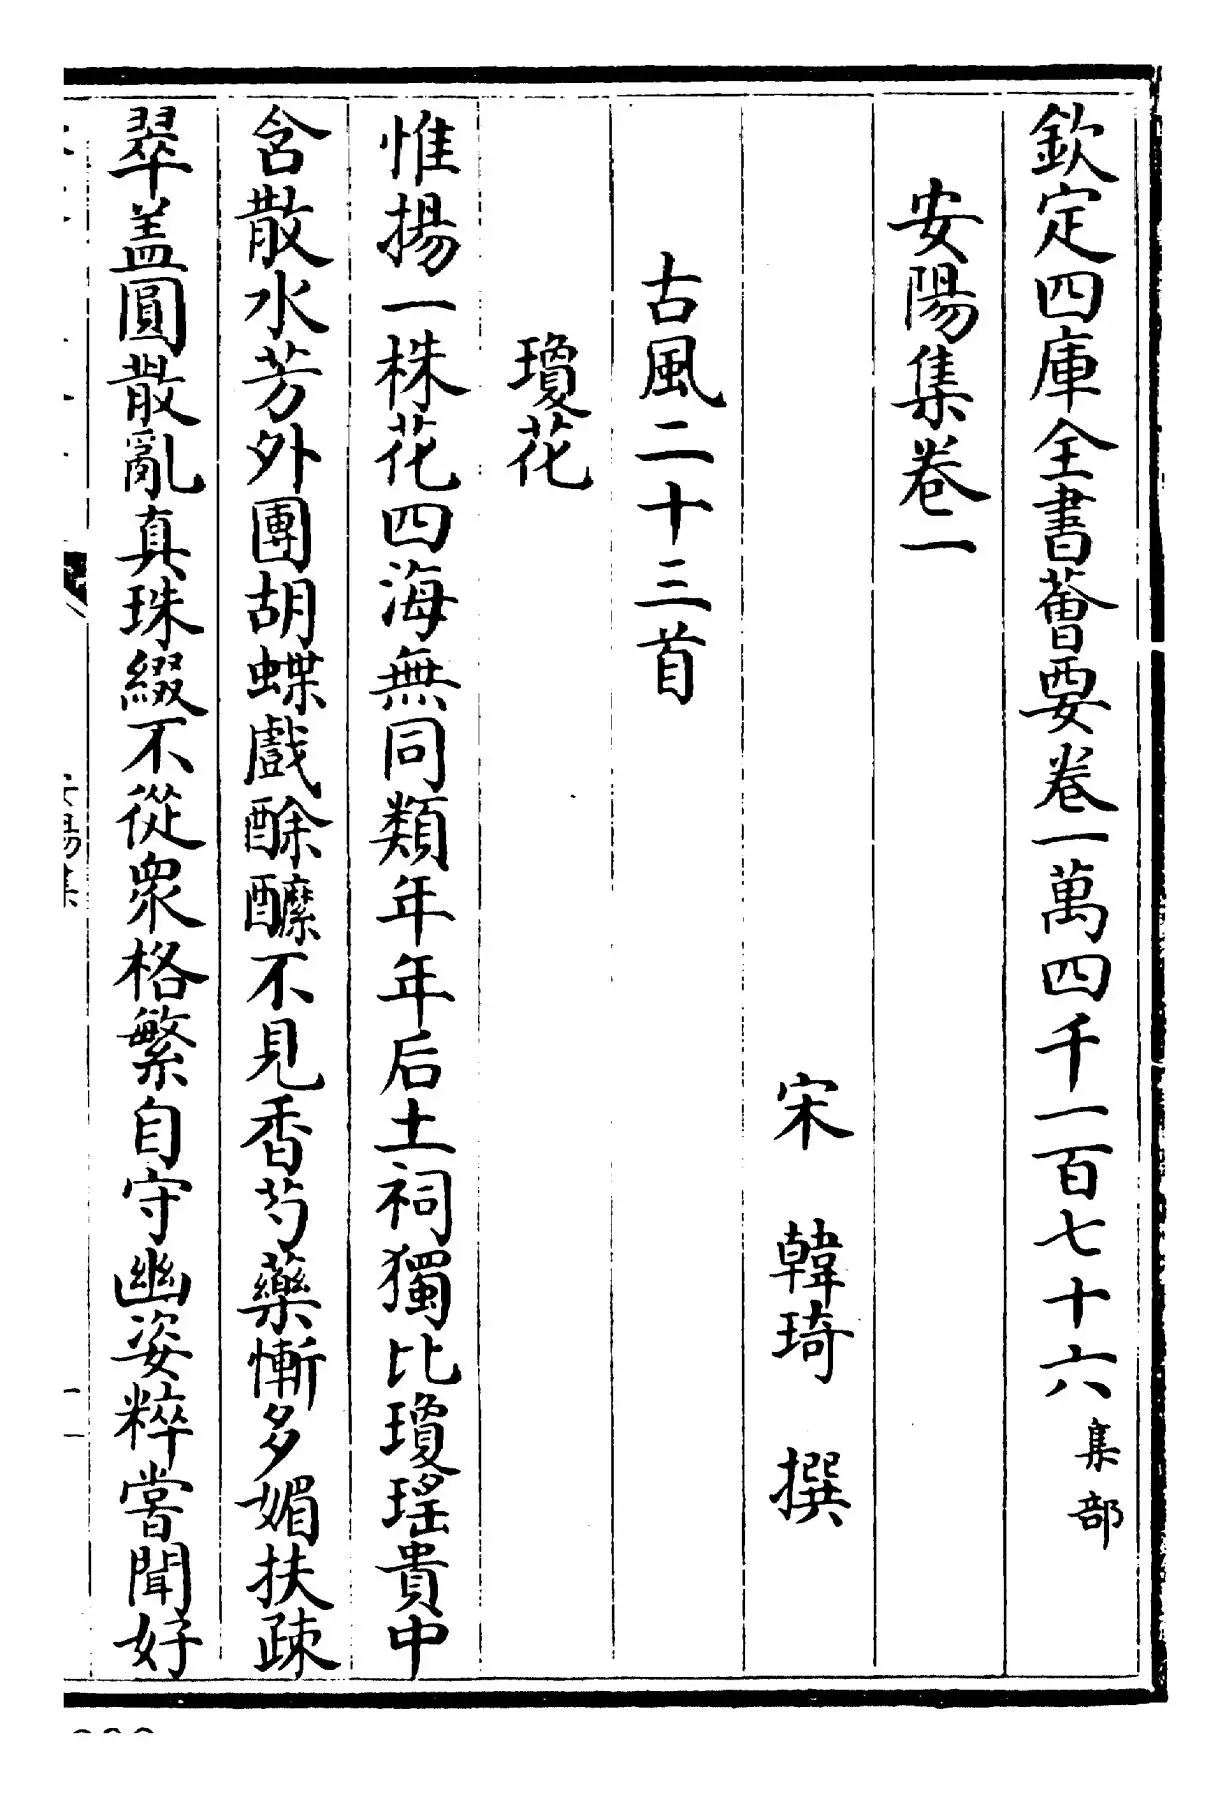 欽定四庫全書薈要卷一萬四千一百七十六集部
安陽集卷一
宋　韓琦　撰
古風二十三首
瓊花
惟揚一株花四海無同類年年后土祠獨比瓊瑤貴中
含散水芳外團胡蝶戲酴醾不見香芍藥慚多媚扶疎
翠盖圓散亂真珠綴不從衆格繁自守幽姿粹嘗聞好